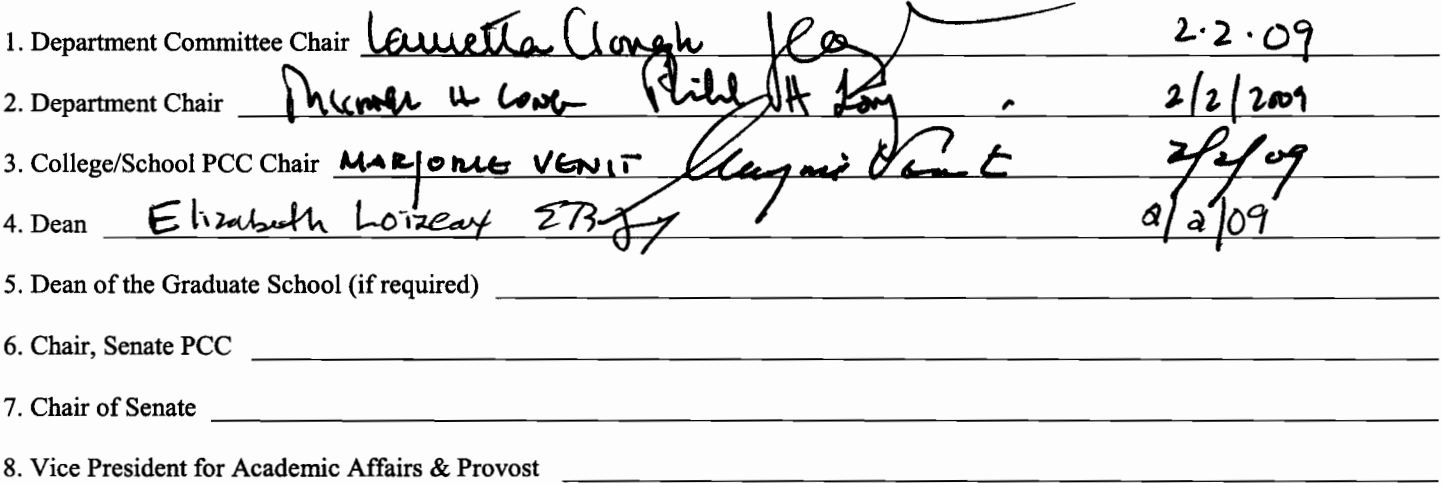 1. Department Committee Chair Lauretta Clough 2.2.09
2. Department Chair H Long H Long 2/2/2009
3. College/School PCC Chair MARJORIE VENIT 2/2/09
4. Dean Elizabeth Loizeaux 2/2/09
5. Dean of the Graduate School (if required)
6. Chair, Senate PCC
7. Chair of Senate
8. Vice President for Academic Affairs & Provost